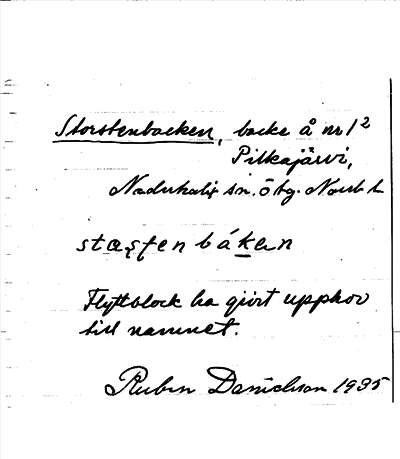 Storstenbacken, backe å nr 1²
Pilkajärvi,
Nederkalix sn. ö bg. Norrb l
stơᶒșțen bákan
Flyttblock ha gjort upphov
till namnet.
Ruben Danielsson 1935